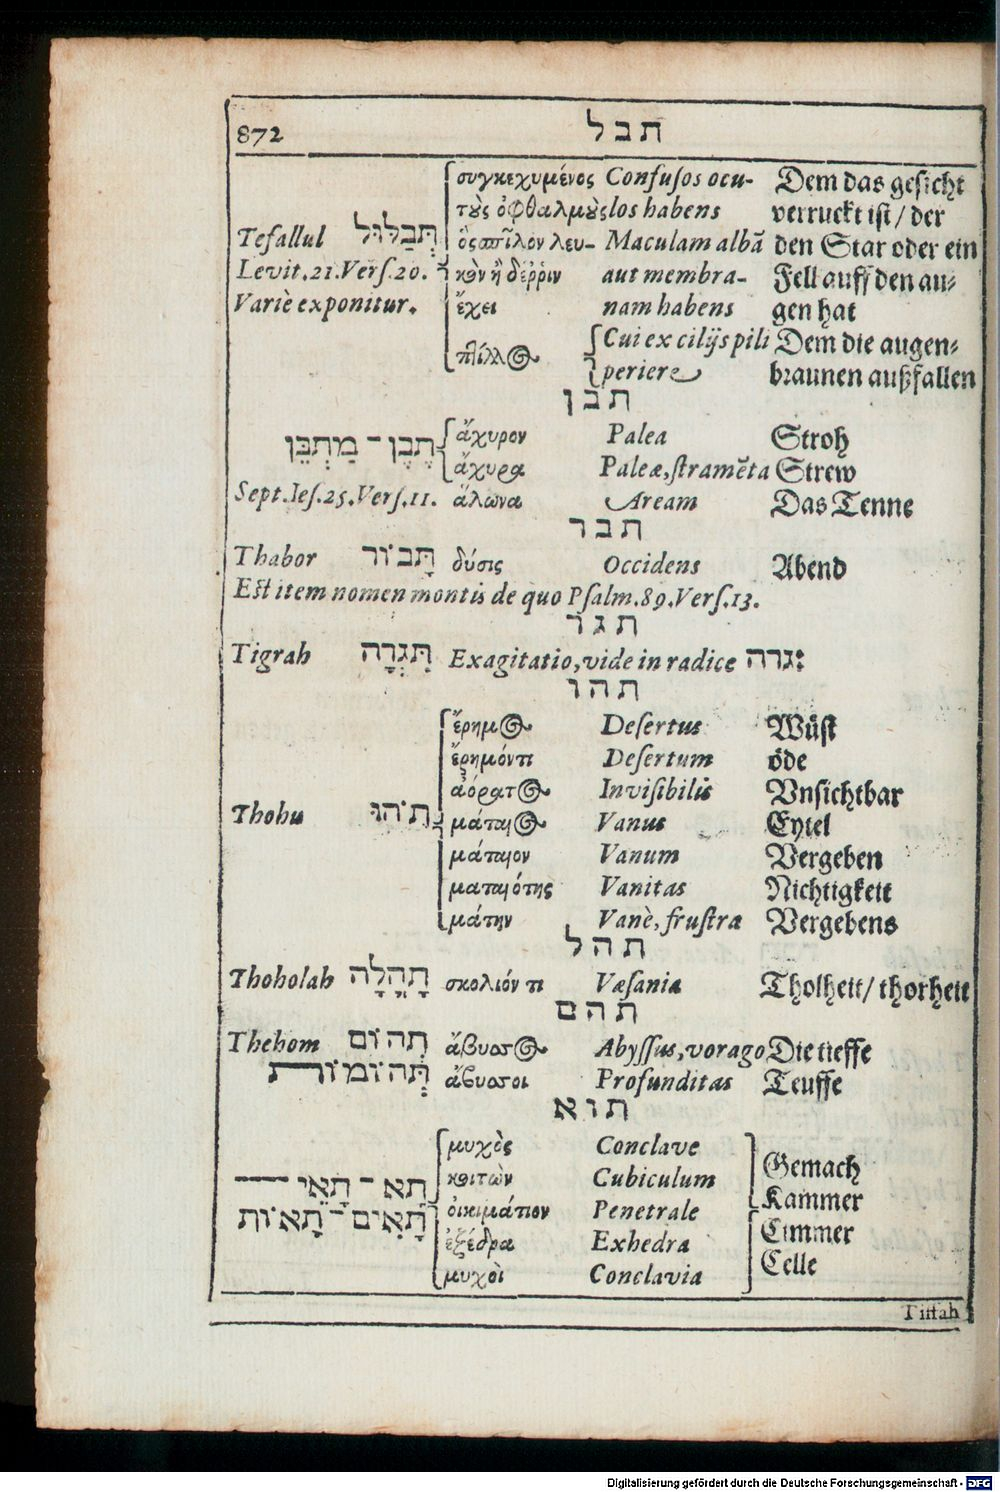 872 תבל
συγκεχυμένος Confusos ocu- Dem das gesicht
τοὺς ὀφθαλμοὺς los habens verruckt ist/ der
Tefallul תְּבַלּוּל ὃς πῖλον λευ- Maculam albā den Star oder ein
Levit.21.Vers.20. κὸν ἢ δέῤῥιν aut membra- Fell auff den au-
Variè exponitur. ἔχει nam habens gen hat
Cui ex cilijs pili Dem die augen-
periere braunen außfallen
תבן
תֶּבֶן - מַתְבֵּן ἄχυρον Palea Stroh
ἄχυρα Paleæ, stramēta Strew
Sept. Ies.25.Vers.11. ἅλωνα Aream Das Tenne
תבר
Thabor תָּבוֹר δύσις Occidens Abend
Est item nomen montis de quo Psalm.89.Vers.13.
תגר
Tigrah תִּגְרָה Exagitatio, vide in radice גרה:
תהו
ἔρημος Desertus Wüst
ἔρημόν τι Desertum öde
ἀόρατος Invisibilis Vnsichtbar
Thohu תֹהוּ μάταιος Vanus Eytel
μάταιον Vanum Vergeben
ματαιότης Vanitas Nichtigkeit
μάτην Vanè, frustra Vergebens
תהל
Thoholah תָהֳלָה σκολιόν τι Væsania Tholheit/ thorheit
תהם
Thehom תְהוֹם ἄβυσσος Abyssus, vorago Die tieffe
תְּהוֹמוֹת ἄβυσσοι Profunditas Teuffe
תוא
μυχὸς Conclave Gemach
תָא - תָאֵי κοιτὼν Cubiculum Kammer
תָּאִים - תָּאוֹת οἰκιμάτιον Penetrale Cimmer
ἐξέδρα Exhedra Celle
μυχοὶ Conclavia
Digitalisierung gefördert durch die Deutsche Forschungsgemeinschaft - DFG